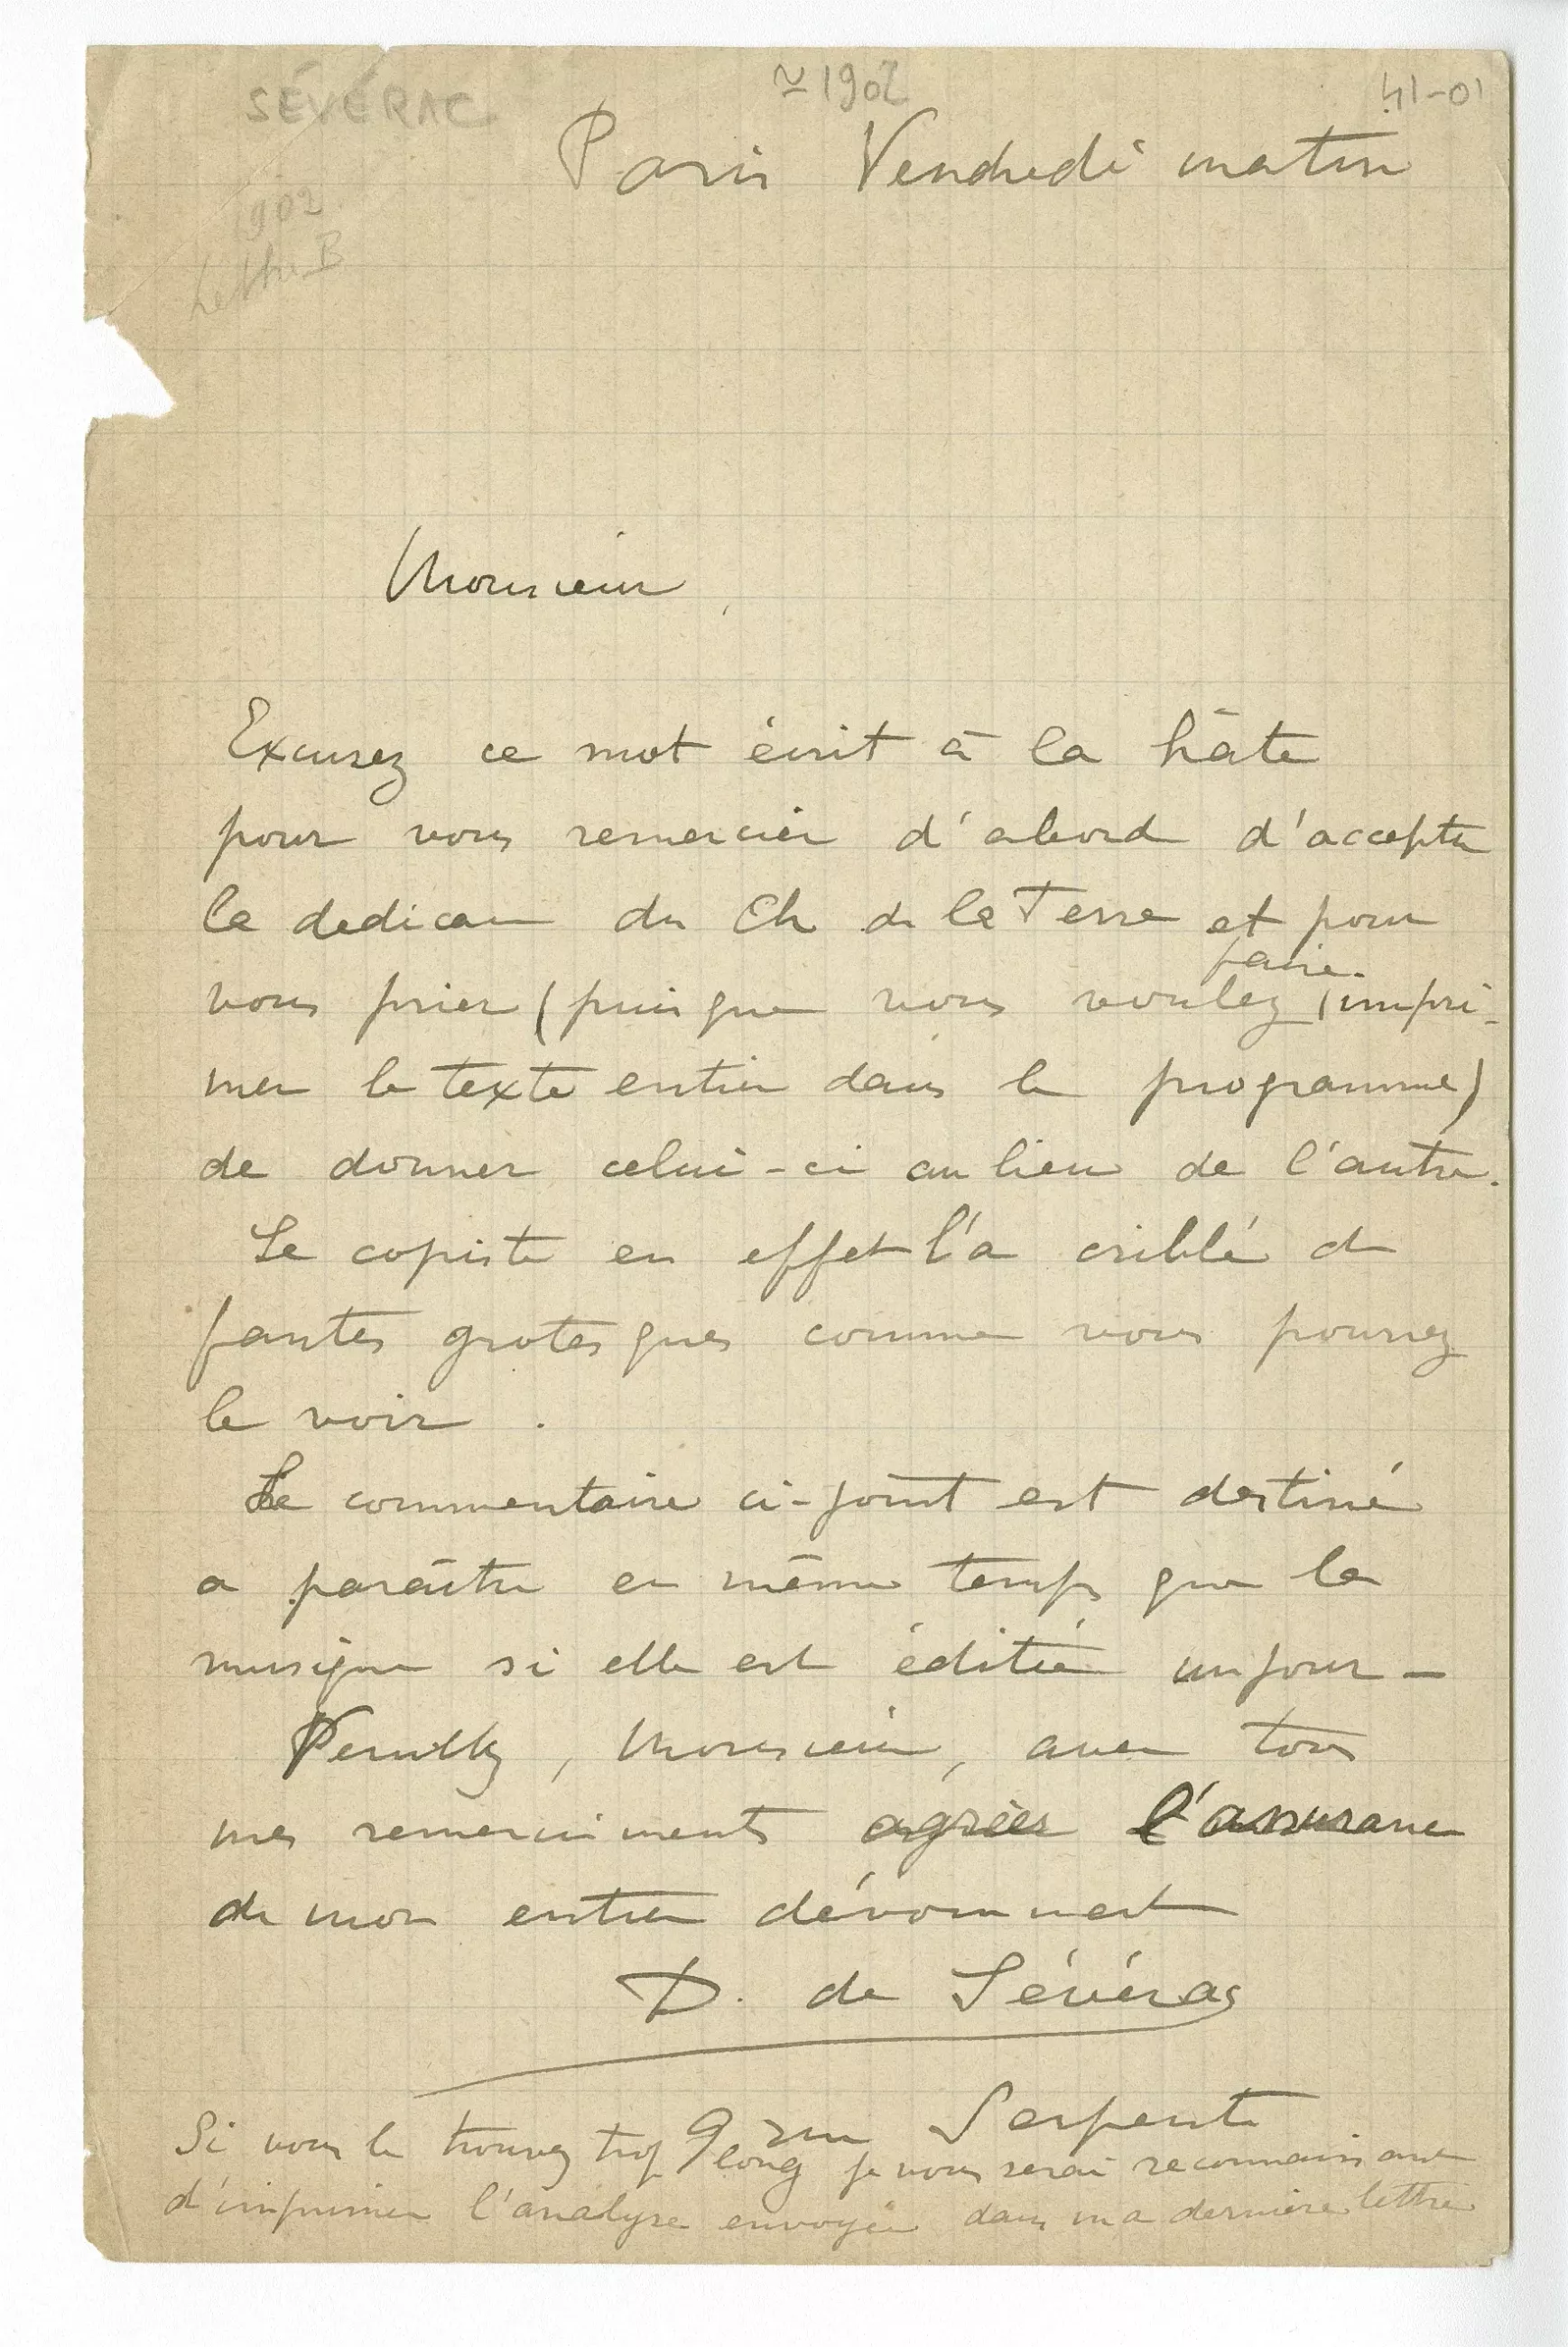 SÉVÉRAC
≃ 1902
41-01
Paris Vendredi matin
1902
Lettre B
Monsieur,
Excusez ce mot écrit à la hâte
pour vous remercier d'abord d'accepter
la dedicace du Ch de la Terre et pour
faire
vous prier (puisque vous voulez impri-
mer le texte entier dans le programme)
de donner celui-ci au lieu de l'autre.
Le copiste en effet l'a criblé de
fautes grotesques comme vous pourrez
le voir.
Le commentaire ci-joint est destiné
a paraître en même temps que la
musique si elle est éditée un jour -
Veuillez, Monsieur, avec tous
mes remerciments agréer l'assurance
de mon entier dévouement
D. de Sévérac
9 rue Serpente
Si vous le trouvez trop long je vous serai reconnaissant
d'imprimer l'analyse envoyée dans ma dernière lettre